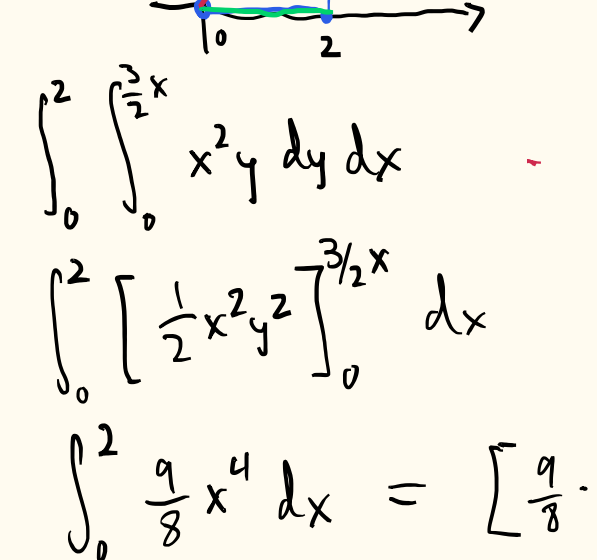 0 2
∫₀² ∫₀^(3/2 x) x²y dy dx
∫₀² [1/2 x²y²]₀^(3/2 x) dx
∫₀² 9/8 x⁴ dx = [9/8 ·